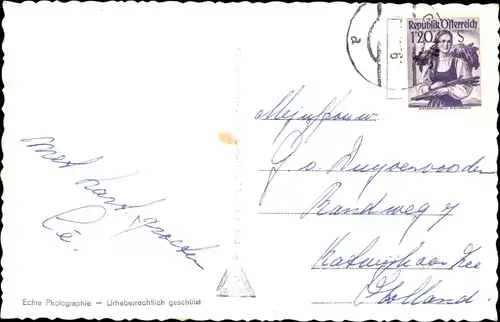 Republik Österreich
1'20 S
a
Mejuffrouw.
G. v. Duyvenvoorden
Randweg 7
Katwijk aan Zee
Holland.
met hart. groeten
Lé.
Echte Photographie – Urheberrechtlich geschützt